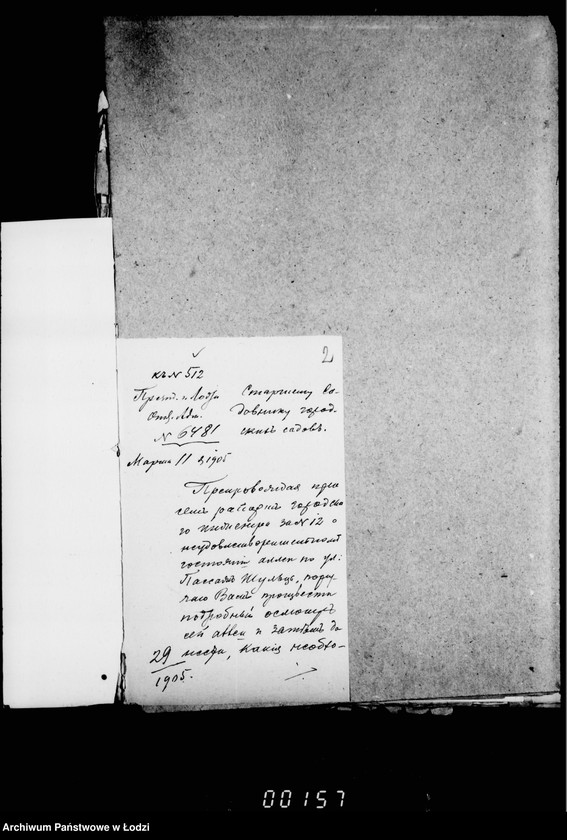 2
къ № 512
Презид. г. Лодзи
Отд. Адм.
№ 6481
Марта 11 д. 1905
Старшему Са-
довнику город-
скихъ садовъ.
Препровождая при
семъ рапортъ городска-
го инженера за № 12 о
неудовлетворительномъ
состояніи аллеи по ул:
Пассажъ Шульца, пору-
чаю Вамъ произвести
подробный осмотръ
сей аллеи и затѣмъ до
нести, какія необхо-
29
1905.
00157
Archiwum Państwowe w Łodzi